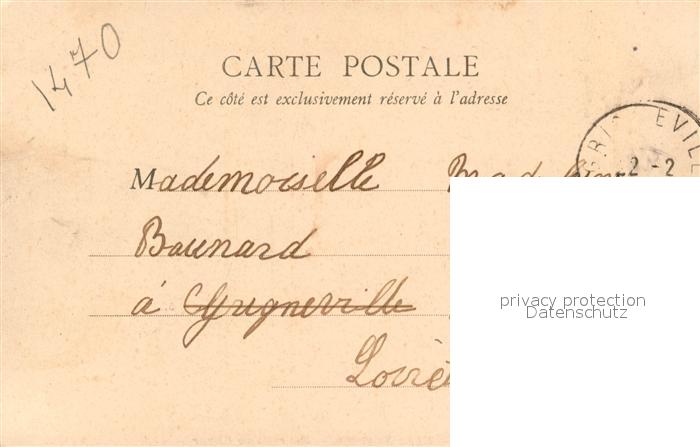 1470
CARTE POSTALE
Ce côté est exclusivement réservé à l'adresse
EVILLE
2-2
Mademoiselle
Baunard
à Grigneville
privacy protection
Datenschutz